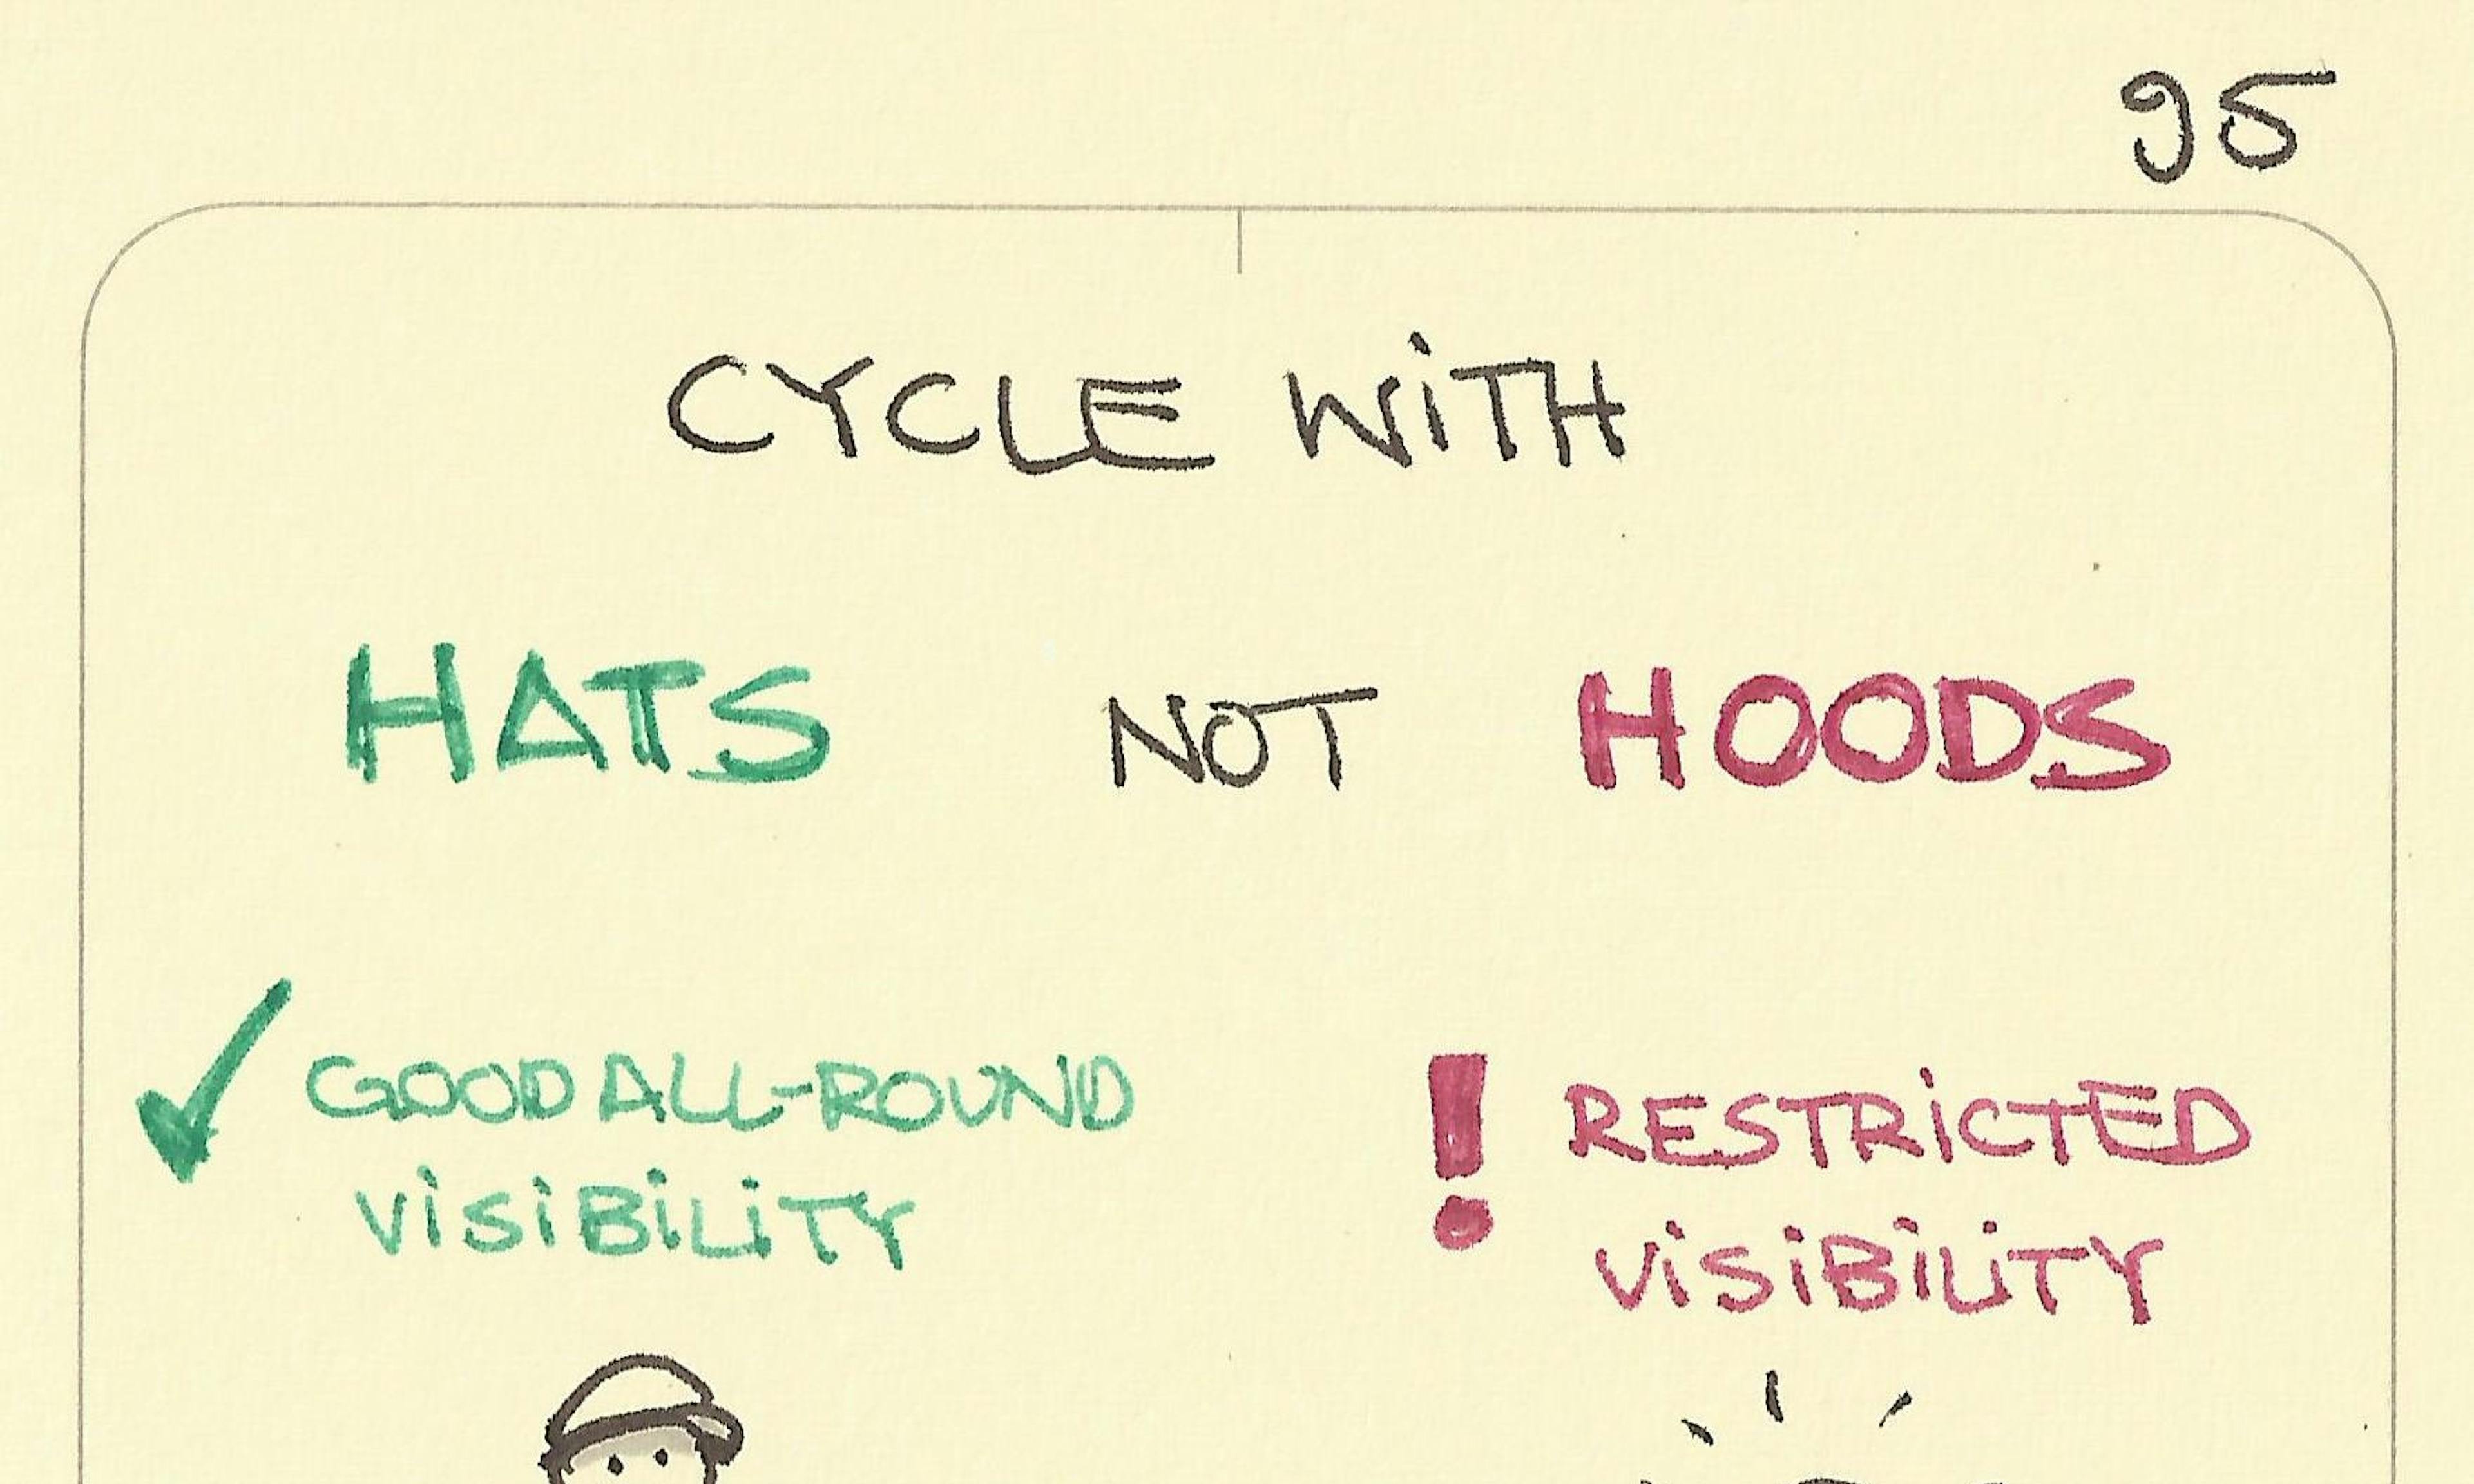 95
CYCLE WITH
HATS NOT HOODS
GOOD ALL-ROUND
VISIBILITY
! RESTRICTED
VISIBILITY